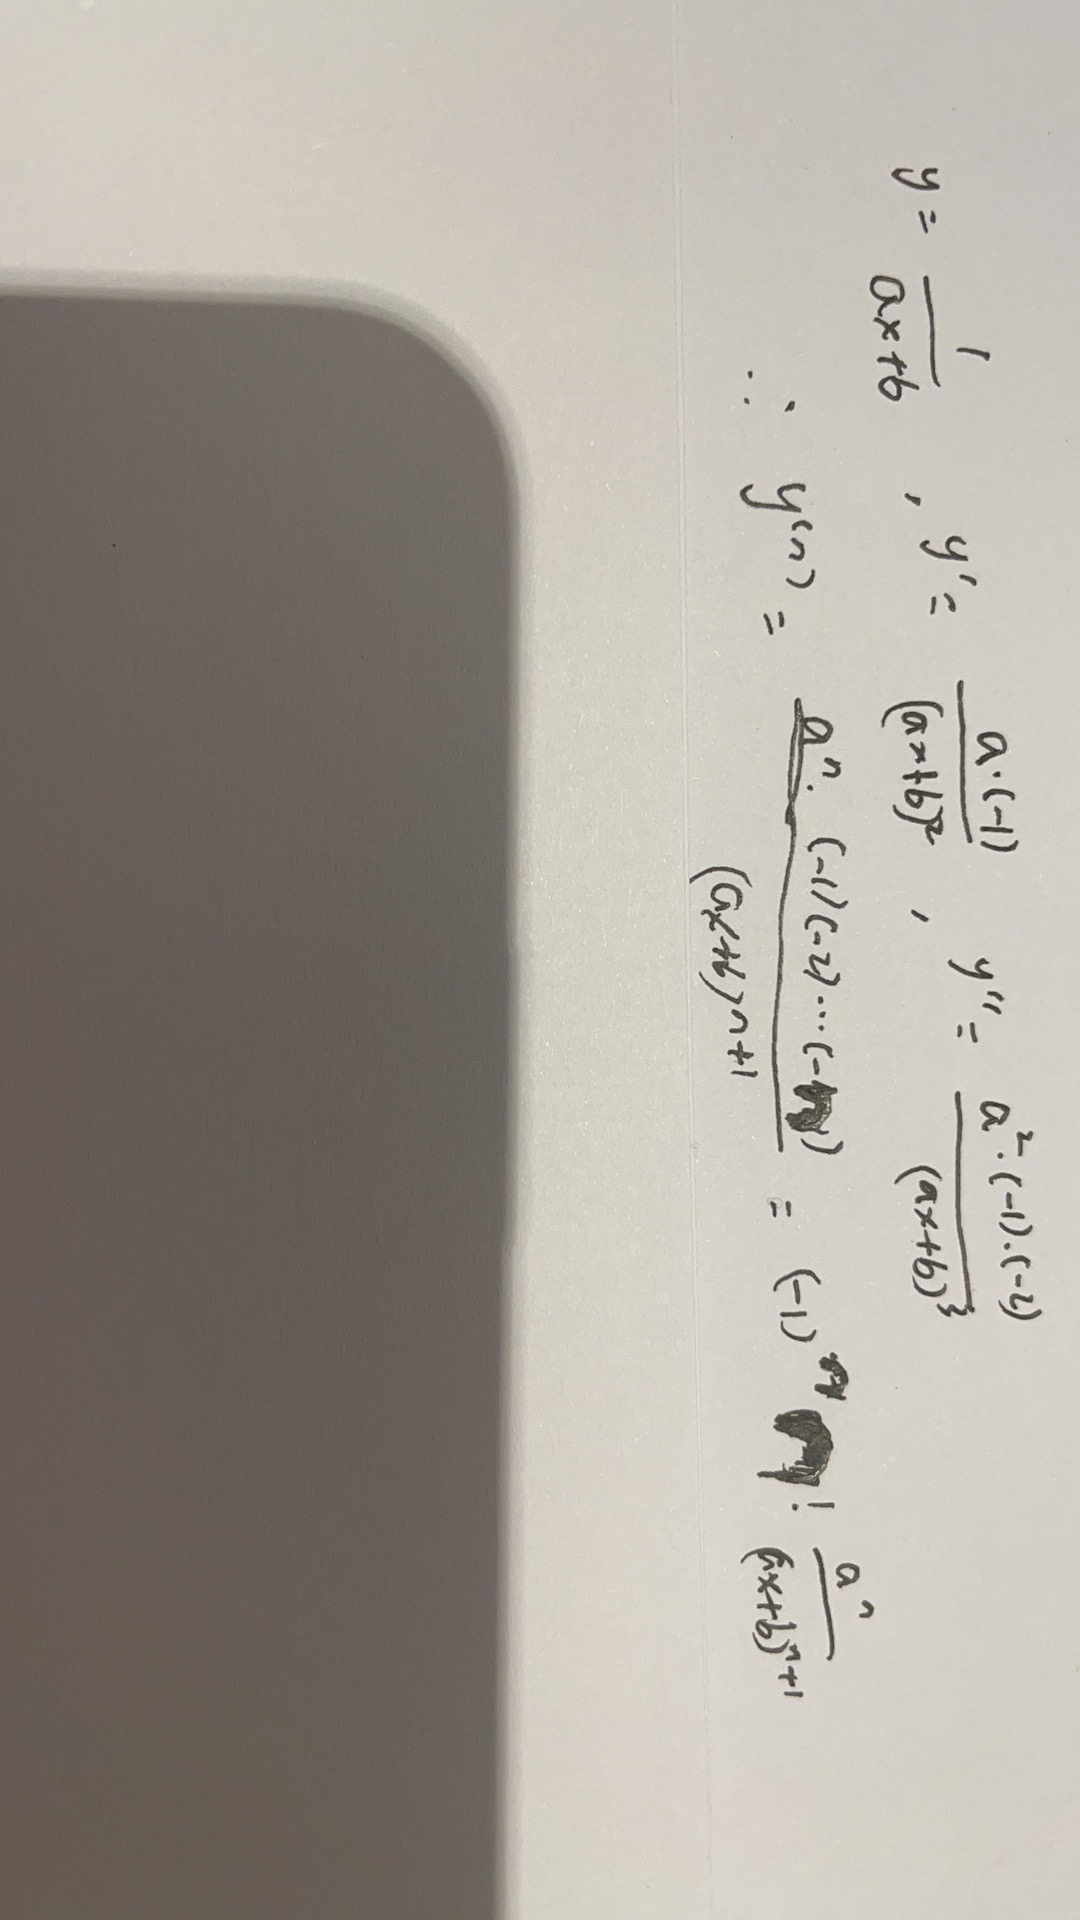 y = 1/(ax+b) , y' = a·(-1)/(ax+b)² , y'' = a²·(-1)·(-2)/(ax+b)³
∴ y⁽ⁿ⁾ = aⁿ·(-1)(-2)···(-n)/(ax+b)ⁿ⁺¹ = (-1)ⁿ n! aⁿ/(ax+b)ⁿ⁺¹